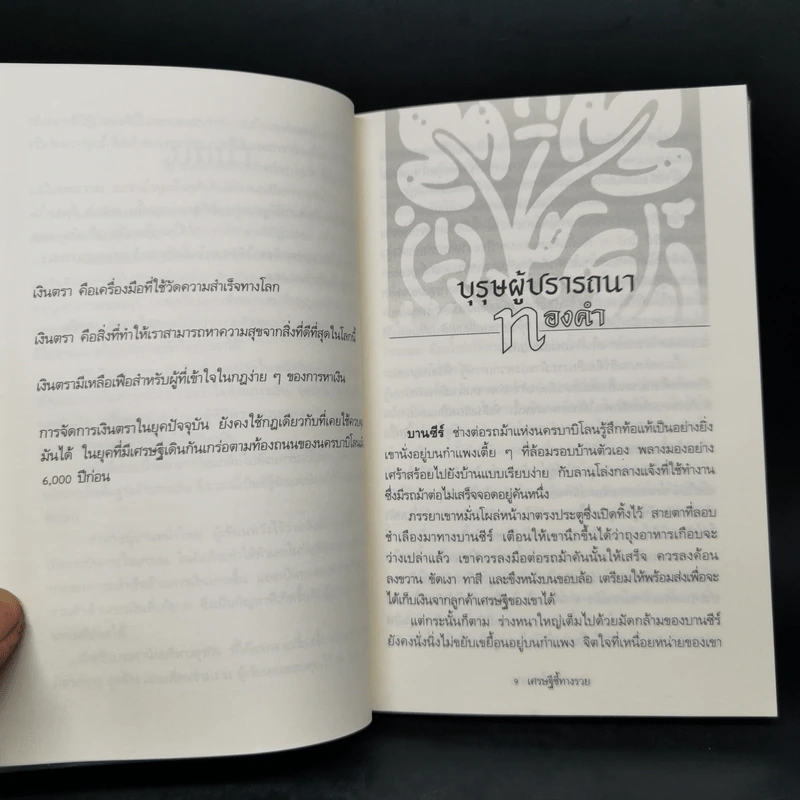 เงินตรา คือเครื่องมือที่ใช้วัดความสำเร็จทางโลก
เงินตรา คือสิ่งที่ทำให้เราสามารถหาความสุขจากสิ่งที่ดีที่สุดในโลกนี้
เงินตรามีเหลือเฟือสำหรับผู้ที่เข้าใจในกฎง่าย ๆ ของการหาเงิน
การจัดการเงินตราในยุคปัจจุบัน ยังคงใช้กฎเดียวกับที่เคยใช้
มันได้ ในยุคที่มีเศรษฐีเดินกันเกร่อตามท้องถนนของนครบาบิโลน
6,000 ปีก่อน
บุรุษผู้ปรารถนา
ทองคำ
บานซีร์ ช่างต่อรถม้าแห่งนครบาบิโลนรู้สึกท้อแท้เป็นอย่างยิ่ง
เขานั่งอยู่บนกำแพงเตี้ย ๆ ที่ล้อมรอบบ้านตัวเอง พลางมองอย่าง
เศร้าสร้อยไปยังบ้านแบบเรียบง่าย กับลานโล่งกลางแจ้งที่ใช้ทำงาน
ซึ่งมีรถม้าต่อไม่เสร็จจอดอยู่คันหนึ่ง
ภรรยาเขาหมั่นโผล่หน้ามาตรงประตูซึ่งเปิดทิ้งไว้ สายตาที่ลอบ
ชำเลืองมาทางบานซีร์ เตือนให้เขานึกขึ้นได้ว่าถุงอาหารเกือบจะ
ว่างเปล่าแล้ว เขาควรลงมือต่อรถม้าคันนั้นให้เสร็จ ควรลงค้อน
ลงขวาน ขัดเงา ทาสี และขึงหนังบนขอบล้อ เตรียมให้พร้อมส่งเพื่อจะ
ได้เก็บเงินจากลูกค้าเศรษฐีของเขาได้
แต่กระนั้นก็ตาม ร่างหนาใหญ่เต็มไปด้วยมัดกล้ามของบานซีร์
ยังคงนั่งนิ่งไม่ขยับเขยื้อนอยู่บนกำแพง จิตใจที่เหนื่อยหน่ายของเขา
9 เศรษฐีชี้ทางรวย